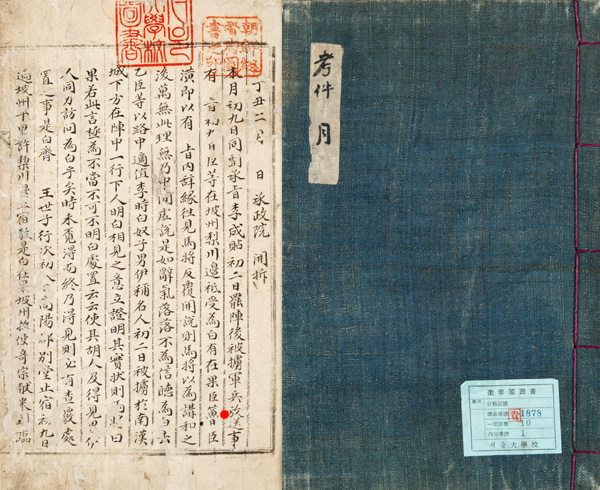 丁丑二月 日 承政院 開拆
本月初九日同副承旨李成貼初二日罷陣後被擄軍兵放送事
有 旨初九日臣等在坡州梨川邊祗受爲白有在果臣 曹 臣
潢即以有 旨內辭緣往見馬將反覆開說則馬將以爲講和之
後萬無此理無乃中間虛說是如辭氣落落不爲信聽爲白去
乙臣等以路中適値李時白奴子男伊稱名人初二日被擄於南漢
城下方在陣中一行下人明白相見之意立證明其實狀則 曰
果若此言極爲不當不可不明白處置云云使其胡人反得見
人同力訪問爲白乎矣時未覓得而終乃得見則必有查覈處
置之事是白齊 王世子行次初八日 高陽 別堂止宿初九日
過坡州十里許梨川邊止宿敎是白在果坡州牧使奇宗獻來
考件 月
奎章閣圖書
分類記號
圖書番號 貴 1878
一部冊數 10
內日番號 1
서울大學校